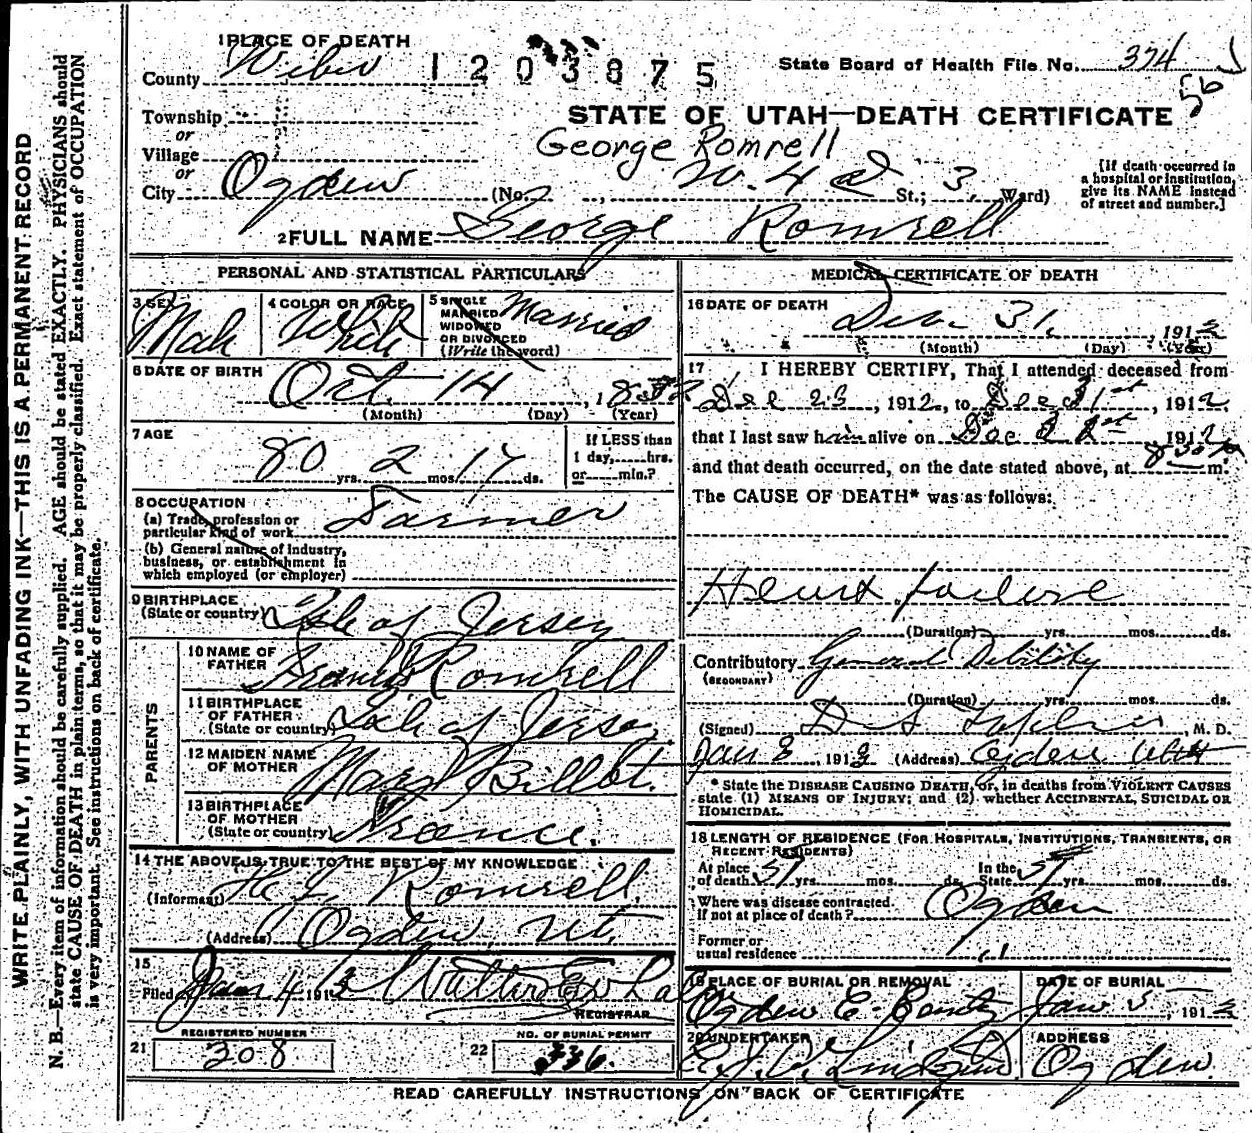 WRITE PLAINLY, WITH UNFADING INK—THIS IS A PERMANENT RECORD
N. B.—Every item of information should be carefully supplied. AGE should be stated EXACTLY. PHYSICIANS should
state CAUSE OF DEATH in plain terms, so that it may be properly classified. Exact statement of OCCUPATION
is very important. See instructions on back of certificate.
1 PLACE OF DEATH
County Weber 1203875 State Board of Health File No. 374
56
Township
or
Village
or
City Ogden
STATE OF UTAH—DEATH CERTIFICATE
George Romrell
(No. W. 4 St.; 3 Ward)
[If death occurred in
a hospital or institution,
give its NAME instead
of street and number.]
2 FULL NAME George Romrell
PERSONAL AND STATISTICAL PARTICULARS
3 SEX Male
4 COLOR OR RACE White
5 SINGLE
MARRIED
WIDOWED
OR DIVORCED
(Write the word)
Married
6 DATE OF BIRTH Oct. 14, 1832
(Month) (Day) (Year)
7 AGE
80 yrs. 2 mos. 17 ds.
If LESS than
1 day,......hrs.
or......min.?
8 OCCUPATION
(a) Trade, profession or
particular kind of work Farmer
(b) General nature of industry,
business, or establishment in
which employed (or employer)
9 BIRTHPLACE
(State or country) Isle of Jersey
PARENTS
10 NAME OF
FATHER Francis Romrell
11 BIRTHPLACE
OF FATHER
(State or country) Isle of Jersey
12 MAIDEN NAME
OF MOTHER Mary Billot
13 BIRTHPLACE
OF MOTHER
(State or country) France.
14 THE ABOVE IS TRUE TO THE BEST OF MY KNOWLEDGE
(Informant) Romrell
(Address) Ogden, Ut.
15
Filed Jan 4 1913 Walter
REGISTRAR
REGISTERED NUMBER
21 308
NO. OF BURIAL PERMIT
22 336
MEDICAL CERTIFICATE OF DEATH
16 DATE OF DEATH
Dec. 31, 1912
(Month) (Day) (Year)
17 I HEREBY CERTIFY, That I attended deceased from
Dec 23, 1912, to Dec 31st, 1912
that I last saw him alive on Dec 1912
and that death occurred, on the date stated above, at 8 30 m.
The CAUSE OF DEATH* was as follows:
Heart failure
(Duration) yrs. mos. ds.
Contributory General Debility
(SECONDARY)
(Duration) yrs. mos. ds.
(Signed) M. D.
Jan 3, 1913 (Address) Ogden Utah
* State the DISEASE CAUSING DEATH, or, in deaths from VIOLENT CAUSES
state (1) MEANS OF INJURY; and (2) whether ACCIDENTAL, SUICIDAL OR
HOMICIDAL.
18 LENGTH OF RESIDENCE (FOR HOSPITALS, INSTITUTIONS, TRANSIENTS, OR
RECENT RESIDENTS)
At place
of death 57 yrs. mos. ds.
In the
State 57 yrs. mos. ds.
Where was disease contracted
if not at place of death? Ogden
Former or
usual residence "
19 PLACE OF BURIAL OR REMOVAL
Ogden
DATE OF BURIAL
Jan 5, 1913
20 UNDERTAKER
ADDRESS
Ogden.
READ CAREFULLY INSTRUCTIONS ON BACK OF CERTIFICATE